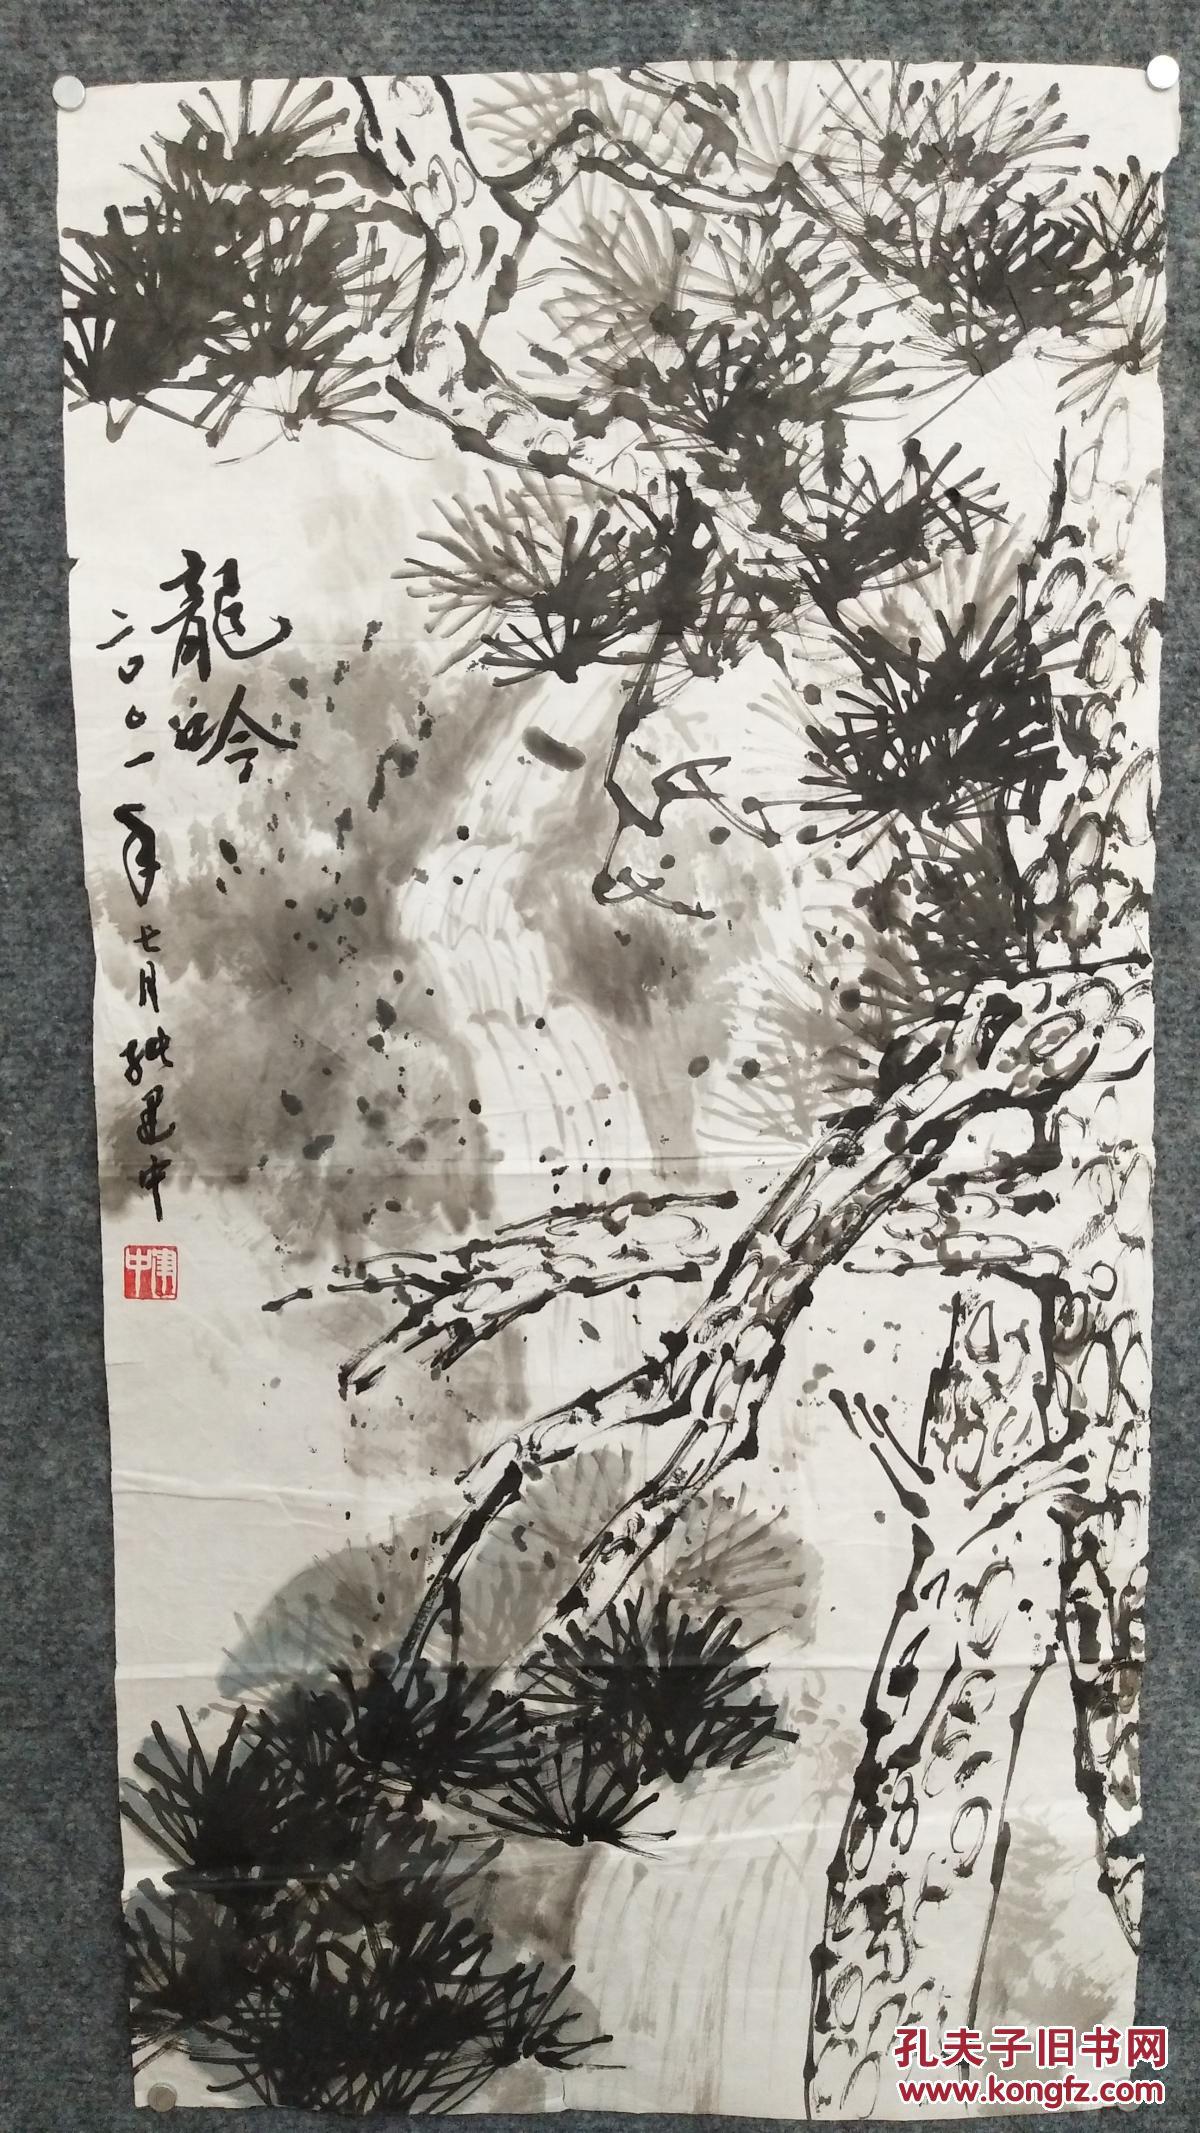 龍吟
二〇〇一年七月
建中
建中
孔夫子旧书网
www.kongfz.com